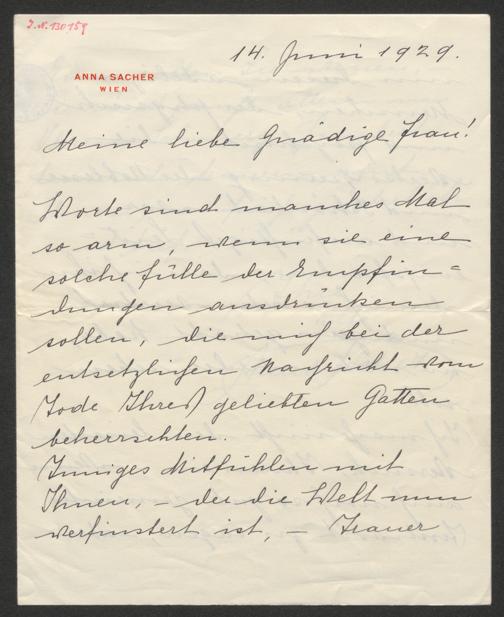 J.N. 130159
14. Juni 1929.
ANNA SACHER
WIEN
Meine liebe Gnädige Frau!
Worte sind manches Mal
so arm, wenn sie eine
solche Fülle der Empfin=
dungen ausdrücken
sollen, die mich bei der
entsetzlichen Nachricht vom
Tode Ihres geliebten Gatten
beherrschten.
Inniges Mitfühlen mit
Ihnen, – der die Welt nun
verfinstert ist, – Trauer